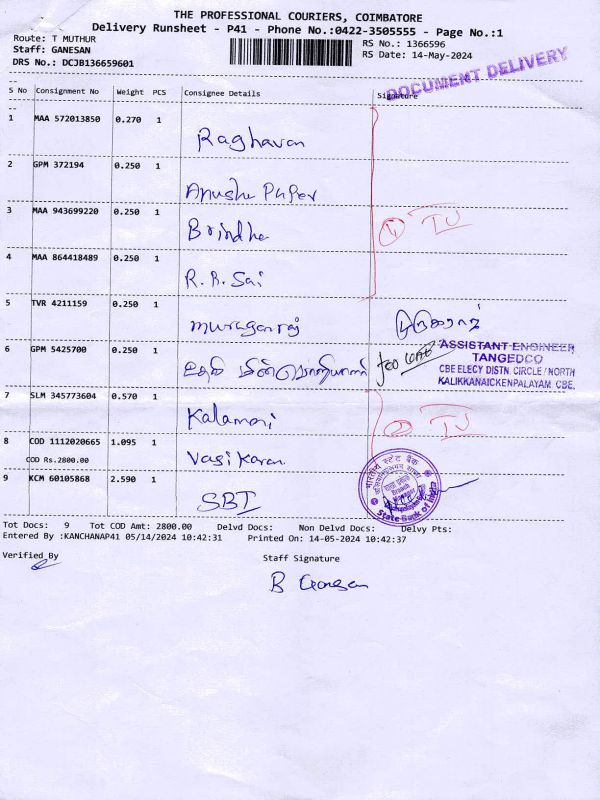 THE PROFESSIONAL COURIERS, COIMBATORE
Delivery Runsheet - P41 - Phone No.:0422-3505555 - Page No.:1
Route: T MUTHUR
RS No.: 1366596
Staff: GANESAN
RS Date: 14-May-2024
DRS No.: DCJB136659601
DOCUMENT DELIVERY
S No Consignment No Weight PCS Consignee Details Signature
1 MAA 572013850 0.270 1 Raghavan
2 GPM 372194 0.250 1 Anusha Paper
3 MAA 943699220 0.250 1 Brindha
4 MAA 864418489 0.250 1 R.R. Sai
5 TVR 4211159 0.250 1 Muraganraj
6 GPM 5425700 0.250 1 உதவி மின்பொறியாளர்
ASSISTANT ENGINEER
TANGEDCO
CBE ELECY DISTN. CIRCLE / NORTH
KALIKKANAICKENPALAYAM, CBE.
7 SLM 345773604 0.570 1 Kalamani
8 COD 1112020665 1.095 1 Vasikaran
COD Rs.2800.00
9 KCM 60105868 2.590 1 SBI
भारतीय स्टेट बैंक
State Bank of India
Tot Docs: 9 Tot COD Amt: 2800.00 Delvd Docs: Non Delvd Docs: Delvy Pts:
Entered By :KANCHANAP41 05/14/2024 10:42:31 Printed On: 14-05-2024 10:42:37
Verified By Staff Signature